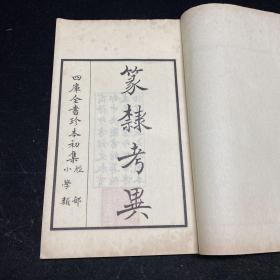 篆隸考異
四庫全書珍本初集 經部
小學類